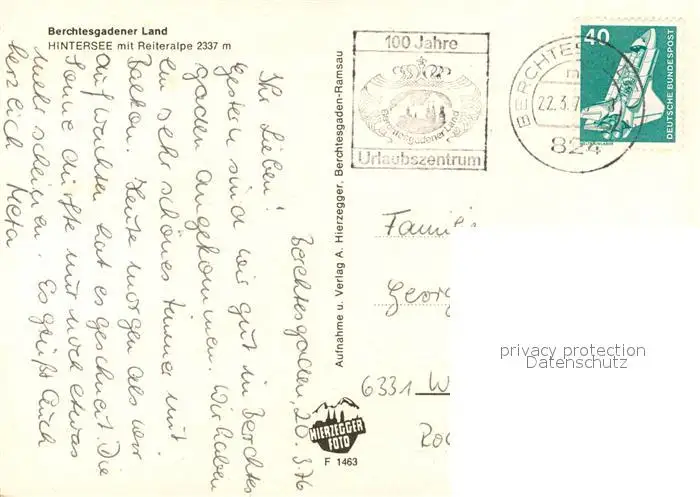 Berchtesgadener Land
HINTERSEE mit Reiteralpe 2337 m
Berchtesgaden, 20.3.76
Ihr Lieben!
Gestern sind wir gut in Berchtes
gaden angekommen. Wir haben
ein sehr schönes Zimmer mit
Balkon. Heute morgen als wir
aufwachten hat es geschneit. Die
Sonne dürfte nur noch etwas
mehr scheinen. Es grüßt Euch
herzlich Meta
Aufnahme u. Verlag A. Hierzegger, Berchtesgaden-Ramsau
HIERZEGGER
FOTO
F 1463
100 Jahre
Berchtesgadener Land
Urlaubszentrum
BERCHTES
22.3.7
824
40
DEUTSCHE BUNDESPOST
Famili
Georg
6331 W
privacy protection
Datenschutz